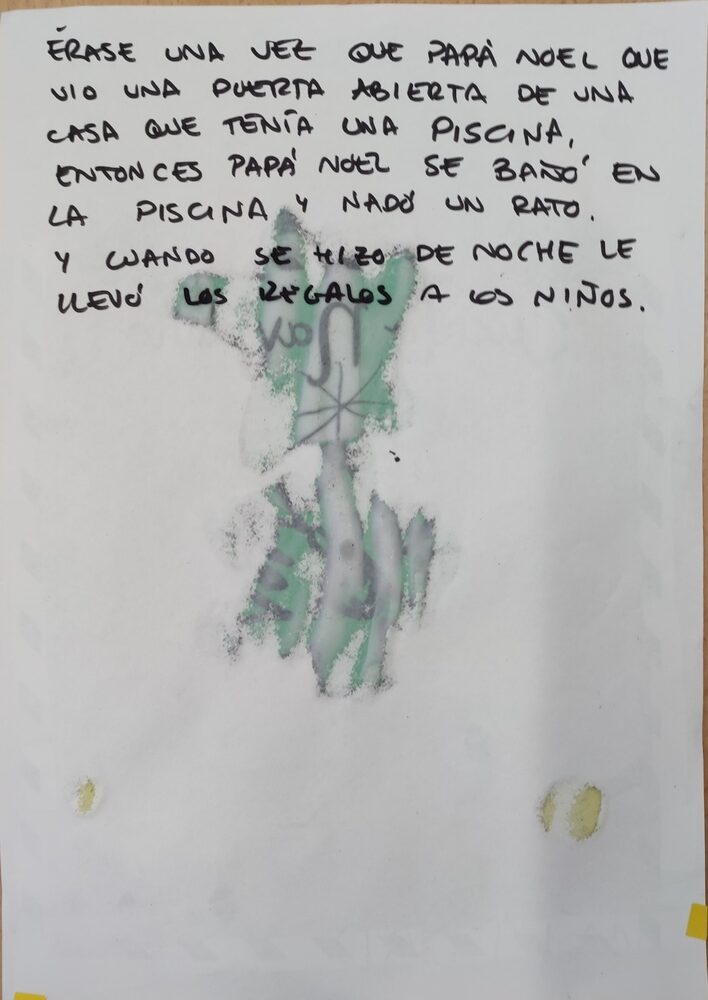 ÉRASE UNA VEZ QUE PAPÁ NOEL QUE
VIO UNA PUERTA ABIERTA DE UNA
CASA QUE TENÍA UNA PISCINA,
ENTONCES PAPÁ NOEL SE BAÑÓ EN
LA PISCINA Y NADÓ UN RATO.
Y CUANDO SE HIZO DE NOCHE LE
LLEVÓ LOS REGALOS A LOS NIÑOS.